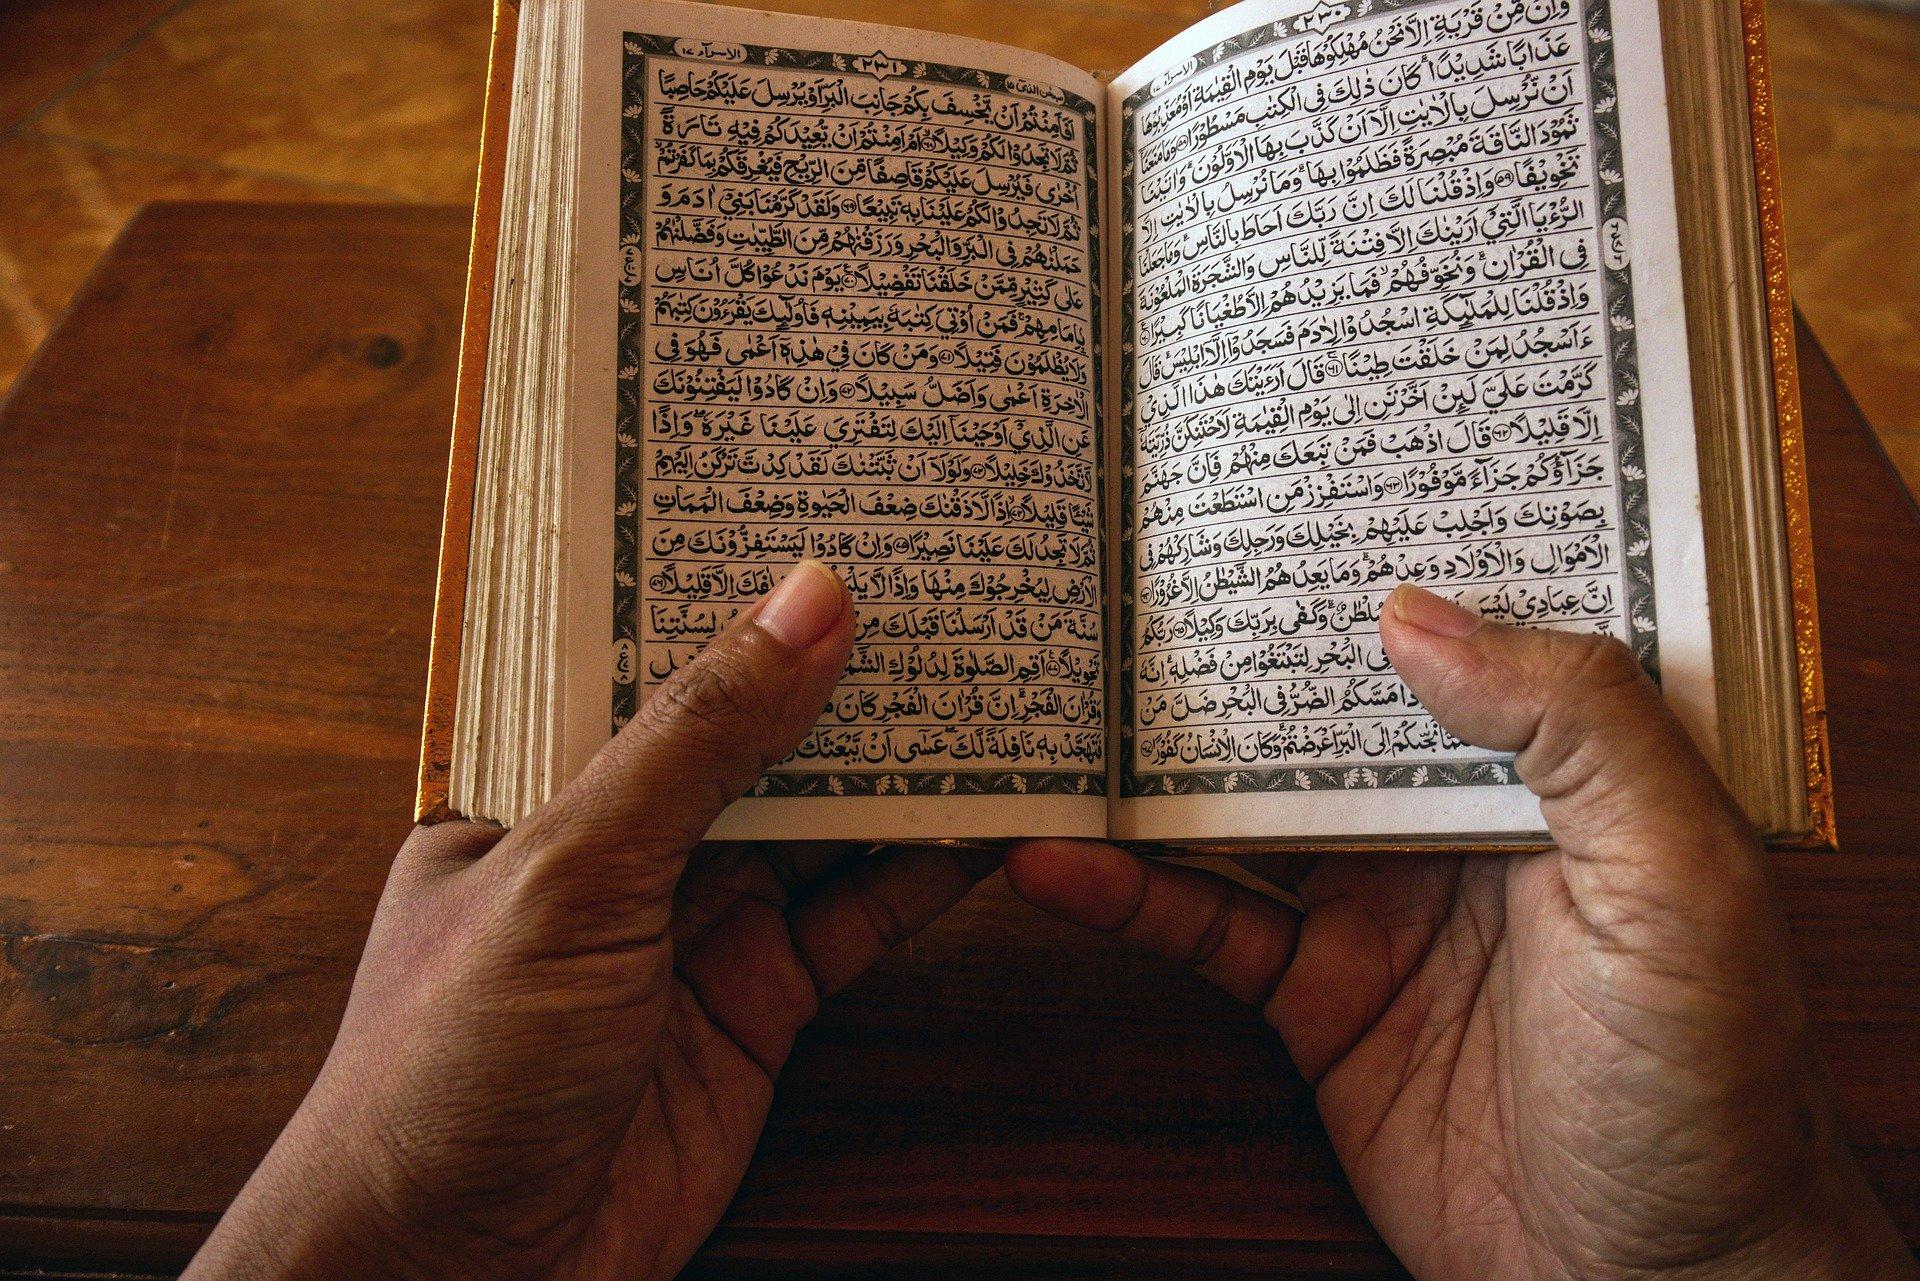 ٢٣٠
وَاِنْ مِّنْ قَرْيَةٍ اِلَّا نَحْنُ مُهْلِكُوْهَا قَبْلَ يَوْمِ الْقِيٰمَةِ اَوْ مُعَذِّبُوْهَا
عَذَابًا شَدِيْدًا ۗ كَانَ ذٰلِكَ فِى الْكِتٰبِ مَسْطُوْرًا ٥٨ وَمَا مَنَعَنَآ
اَنْ نُّرْسِلَ بِالْاٰيٰتِ اِلَّآ اَنْ كَذَّبَ بِهَا الْاَوَّلُوْنَ ۗ وَاٰتَيْنَا
ثَمُوْدَ النَّاقَةَ مُبْصِرَةً فَظَلَمُوْا بِهَا ۗ وَمَا نُرْسِلُ بِالْاٰيٰتِ اِلَّا
تَخْوِيْفًا ٥٩ وَاِذْ قُلْنَا لَكَ اِنَّ رَبَّكَ اَحَاطَ بِالنَّاسِ ۗ وَمَا جَعَلْنَا
الرُّءْيَا الَّتِيْٓ اَرَيْنٰكَ اِلَّا فِتْنَةً لِّلنَّاسِ وَالشَّجَرَةَ الْمَلْعُوْنَةَ
فِى الْقُرْاٰنِ ۗ وَنُخَوِّفُهُمْ ۙ فَمَا يَزِيْدُهُمْ اِلَّا طُغْيَانًا كَبِيْرًا ٦٠
وَاِذْ قُلْنَا لِلْمَلٰٓئِكَةِ اسْجُدُوْا لِاٰدَمَ فَسَجَدُوْٓا اِلَّآ اِبْلِيْسَ ۗ قَالَ
ءَاَسْجُدُ لِمَنْ خَلَقْتَ طِيْنًا ٦١ قَالَ اَرَءَيْتَكَ هٰذَا الَّذِيْ
كَرَّمْتَ عَلَيَّ لَئِنْ اَخَّرْتَنِ اِلٰى يَوْمِ الْقِيٰمَةِ لَاَحْتَنِكَنَّ ذُرِّيَّتَهٗٓ
اِلَّا قَلِيْلًا ٦٢ قَالَ اذْهَبْ فَمَنْ تَبِعَكَ مِنْهُمْ فَاِنَّ جَهَنَّمَ
جَزَآؤُكُمْ جَزَآءً مَّوْفُوْرًا ٦٣ وَاسْتَفْزِزْ مَنِ اسْتَطَعْتَ مِنْهُمْ
بِصَوْتِكَ وَاَجْلِبْ عَلَيْهِمْ بِخَيْلِكَ وَرَجِلِكَ وَشَارِكْهُمْ فِى
الْاَمْوَالِ وَالْاَوْلَادِ وَعِدْهُمْ ۗ وَمَا يَعِدُهُمُ الشَّيْطٰنُ اِلَّا غُرُوْرًا ٦٤
اِنَّ عِبَادِيْ لَيْسَ سُلْطٰنٌ ۗ وَكَفٰى بِرَبِّكَ وَكِيْلًا ٦٥ رَبُّكُمُ
فِى الْبَحْرِ لِتَبْتَغُوْا مِنْ فَضْلِهٖ ۗ اِنَّهٗ
مَسَّكُمُ الضُّرُّ فِى الْبَحْرِ ضَلَّ مَنْ
نَجّٰىكُمْ اِلَى الْبَرِّ اَعْرَضْتُمْ ۗ وَكَانَ الْاِنْسَانُ كَفُوْرًا ٦٧
سبحٰن الذىٓ ١٥
٢٣١
الاسرآء ١٧
اَفَاَمِنْتُمْ اَنْ يَّخْسِفَ بِكُمْ جَانِبَ الْبَرِّ اَوْ يُرْسِلَ عَلَيْكُمْ حَاصِبًا
ثُمَّ لَا تَجِدُوْا لَكُمْ وَكِيْلًا ٦٨ اَمْ اَمِنْتُمْ اَنْ يُّعِيْدَكُمْ فِيْهِ تَارَةً
اُخْرٰى فَيُرْسِلَ عَلَيْكُمْ قَاصِفًا مِّنَ الرِّيْحِ فَيُغْرِقَكُمْ بِمَا كَفَرْتُمْ ۙ
ثُمَّ لَا تَجِدُوْا لَكُمْ عَلَيْنَا بِهٖ تَبِيْعًا ٦٩ وَلَقَدْ كَرَّمْنَا بَنِيْٓ اٰدَمَ وَ
حَمَلْنٰهُمْ فِى الْبَرِّ وَالْبَحْرِ وَرَزَقْنٰهُمْ مِّنَ الطَّيِّبٰتِ وَفَضَّلْنٰهُمْ
عَلٰى كَثِيْرٍ مِّمَّنْ خَلَقْنَا تَفْضِيْلًا ٧٠ يَوْمَ نَدْعُوْا كُلَّ اُنَاسٍ
بِاِمَامِهِمْ ۚ فَمَنْ اُوْتِيَ كِتٰبَهٗ بِيَمِيْنِهٖ فَاُولٰٓئِكَ يَقْرَءُوْنَ كِتٰبَهُمْ
وَلَا يُظْلَمُوْنَ فَتِيْلًا ٧١ وَمَنْ كَانَ فِيْ هٰذِهٖٓ اَعْمٰى فَهُوَ فِى
الْاٰخِرَةِ اَعْمٰى وَاَضَلُّ سَبِيْلًا ٧٢ وَاِنْ كَادُوْا لَيَفْتِنُوْنَكَ
عَنِ الَّذِيْٓ اَوْحَيْنَآ اِلَيْكَ لِتَفْتَرِيَ عَلَيْنَا غَيْرَهٗ ۖ وَاِذًا
لَّاتَّخَذُوْكَ خَلِيْلًا ٧٣ وَلَوْلَآ اَنْ ثَبَّتْنٰكَ لَقَدْ كِدْتَّ تَرْكَنُ اِلَيْهِمْ
شَيْئًا قَلِيْلًا ٧٤ اِذًا لَّاَذَقْنٰكَ ضِعْفَ الْحَيٰوةِ وَضِعْفَ الْمَمَاتِ
ثُمَّ لَا تَجِدُ لَكَ عَلَيْنَا نَصِيْرًا ٧٥ وَاِنْ كَادُوْا لَيَسْتَفِزُّوْنَكَ مِنَ
الْاَرْضِ لِيُخْرِجُوْكَ مِنْهَا وَاِذًا لَّا اِلَّا قَلِيْلًا ٧٦
سُنَّةَ مَنْ قَدْ اَرْسَلْنَا قَبْلَكَ مِنْ لِسُنَّتِنَا
تَحْوِيْلًا ٧٧ اَقِمِ الصَّلٰوةَ لِدُلُوْكِ
وَقُرْاٰنَ الْفَجْرِ ۗ اِنَّ قُرْاٰنَ الْفَجْرِ كَانَ
فَتَهَجَّدْ بِهٖ نَافِلَةً لَّكَ ۖ عَسٰٓى اَنْ يَّبْعَثَكَ